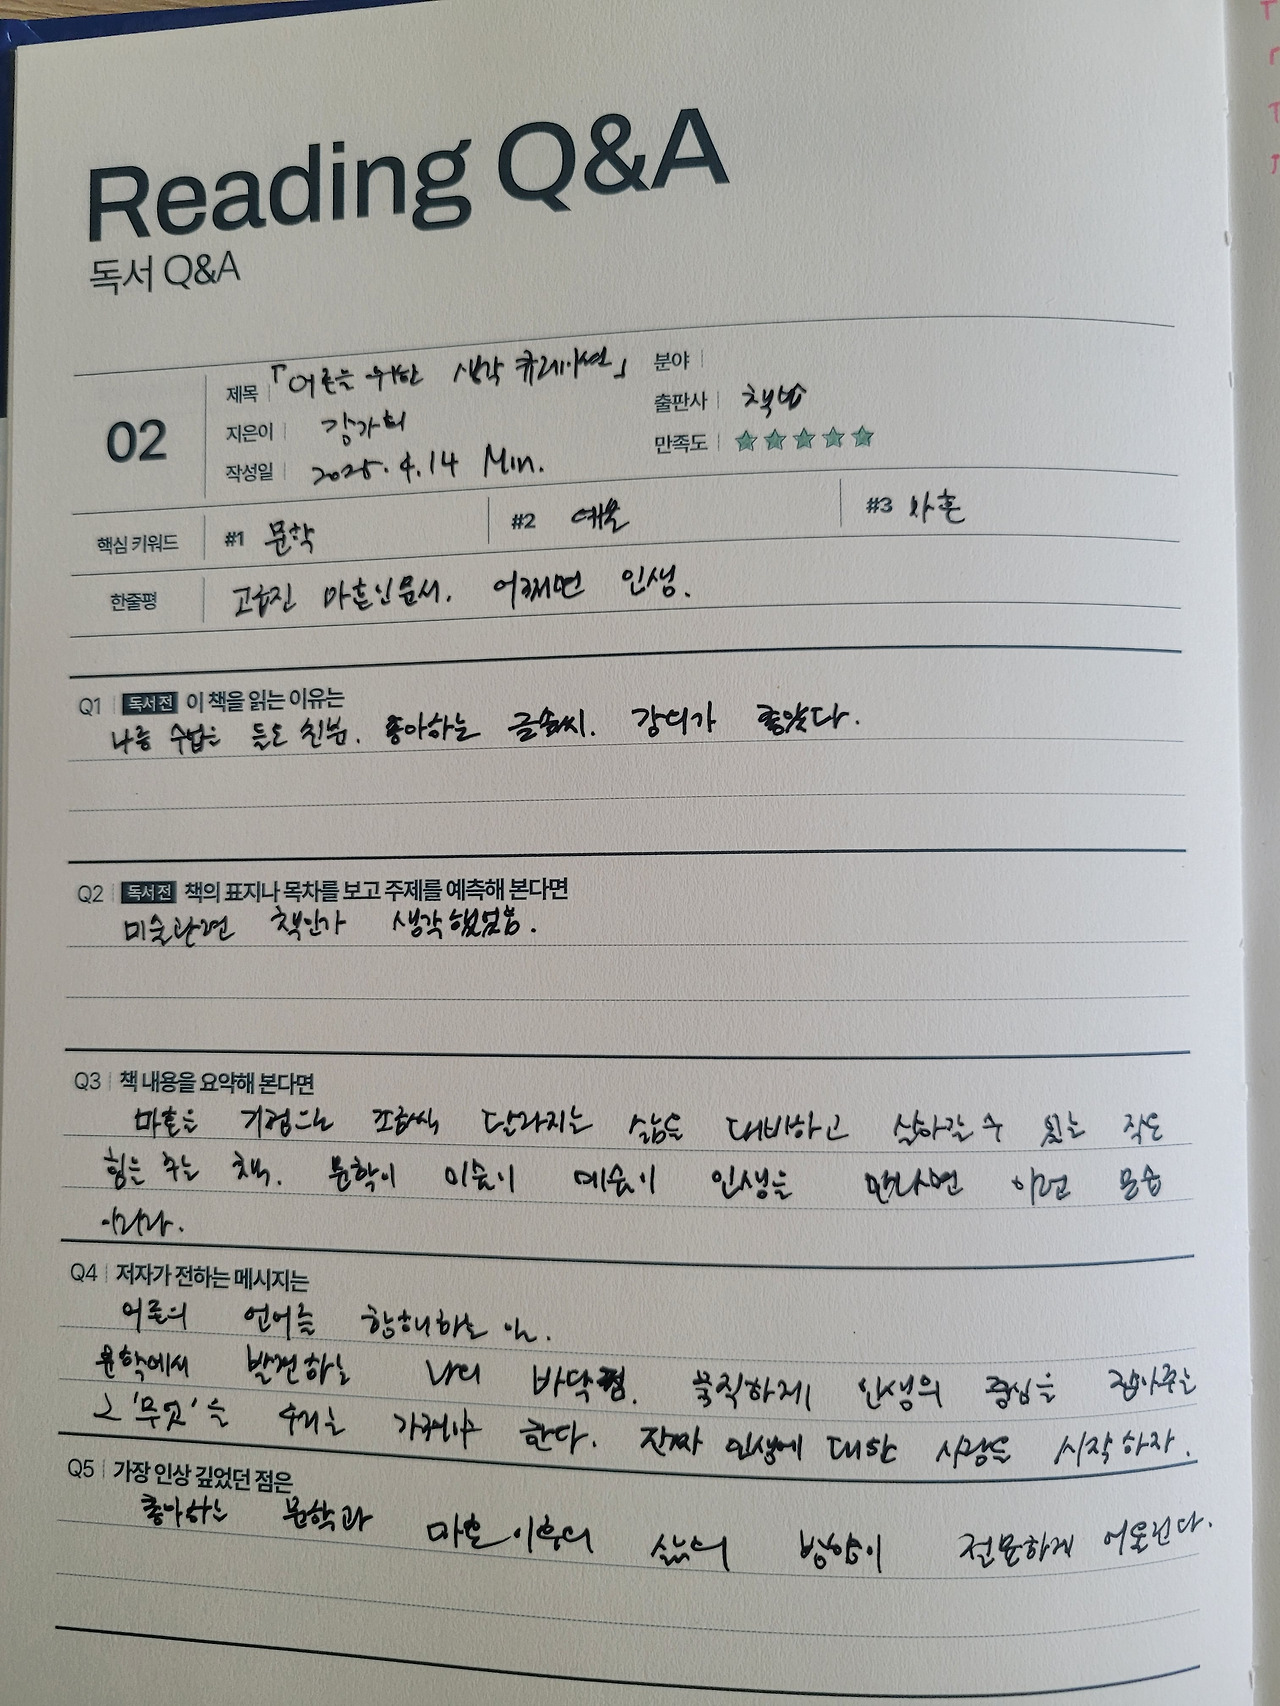 Reading Q&A
독서 Q&A
02
제목 「어른을 위한 생각 큐레이션」 분야
지은이 강가희 출판사 책밥
작성일 2025. 4. 14 Min. 만족도 ★★★★★
핵심 키워드 #1 문학 #2 예술 #3 마흔
한줄평 고급진 마흔인문서. 어쩌면 인생.
Q1 독서 전 이 책을 읽는 이유는
나름 수법은 친분. 좋아하는 글솜씨. 강의가 좋았다.
Q2 독서 전 책의 표지나 목차를 보고 주제를 예측해 본다면
미술관련 책인가 생각했었음.
Q3 책 내용을 요약해 본다면
마흔을 기점으로 조금씩 달라지는 삶을 대비하고 살아갈 수 있는 작은
힘을 주는 책. 문학이 미술이 예술이 인생을 만나면 이런 모습
이리라.
Q4 저자가 전하는 메시지는
어른의 언어를 항해하는 일.
문학에서 발견하는 나의 바닥짐. 묵직하게 인생의 중심을 잡아주는
그 '무엇'을 우리는 가져야 한다. 진짜 인생에 대한 사랑을 시작하자.
Q5 가장 인상 깊었던 점은
좋아하는 문학과 마흔 이후의 삶의 방향이 절묘하게 어울린다.